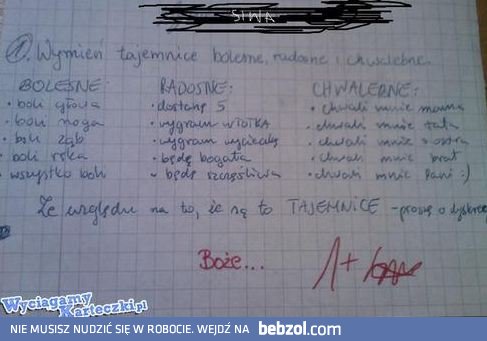 SIWA
1. Wymień tajemnice bolesne, radosne i chwalebne.
BOLESNE: RADOSNE: CHWALEBNE:
• boli głowa • dostanę 5 • chwali mnie mama
• boli noga • wygram w TOTKA • chwali mnie tata
• boli ząb • wygram wycieczkę • chwali mnie siostra
• boli ręka • będę bogata • chwali mnie brat
• wszystko boli • będę szczęśliwa • chwali mnie Pani :)
Ze względu na to, że są to TAJEMNICE - proszę o
Boże... 1+
Wyciągamy
Karteczki.pl
NIE MUSISZ NUDZIĆ SIĘ W ROBOCIE. WEJDŹ NA bebzol.com